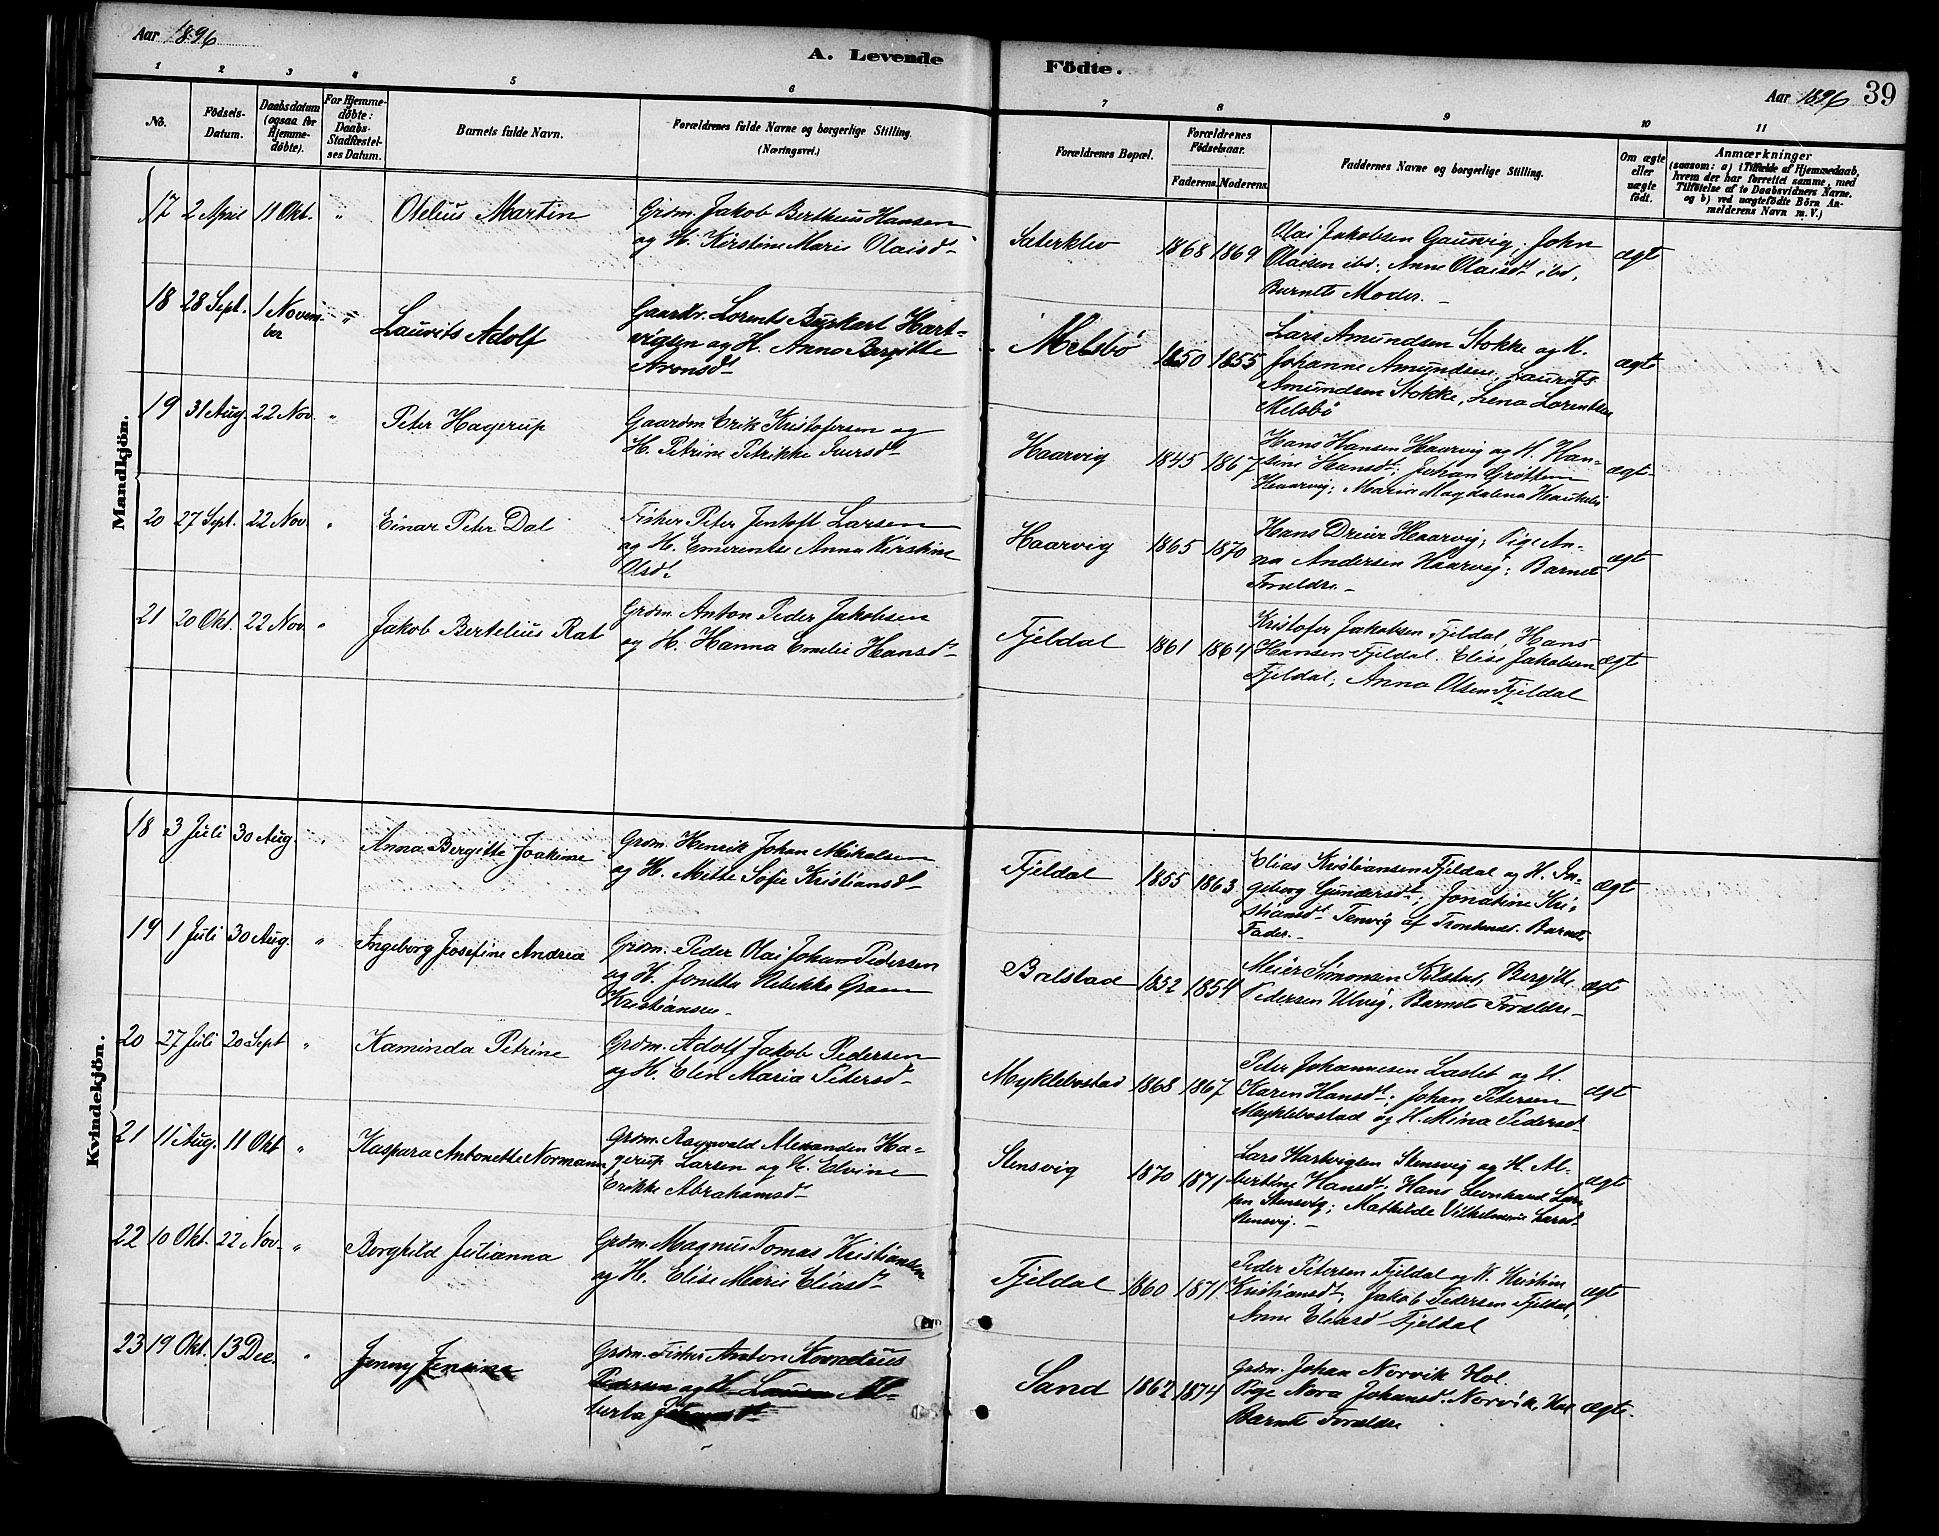 Aar 1896
A. Levende
Födte.
Aar 1896
39
1 2 3 4 5 6 7 8 9 10 11
No.
Födsels-
Datum.
Daabsdatum
(ogsaa for
Hjemme-
döbte).
For Hjemme-
döbte:
Daabs-
Stadfæstel-
ses Datum.
Barnets fulde Navn.
Forældrenes fulde Navne og borgerlige Stilling.
(Næringsvei.)
Forældrenes Bopæl.
Forældrenes
Födselsaar.
Faderens. Moderens.
Faddernes Navne og borgerlige Stilling.
Om ægte
eller
uægte
födt.
Anmærkninger
(saasom: a) i Tilfælde af Hjemmedaab,
hvem der har forrettet samme, med
Tilföielse af to Daabsvidners Navne.
og b) ved uægtefödte Börn An-
melderens Navn m. V.)
Mandkjön.
17 2 April 11 Okt. " Otelius Martin
Grdm. Jakob Bertheus Hansen
og H. Kirstine Marie Olaisdt
Saterklev 1868 1869
Olai Jakobsen Gausvig, John
Olaisen ibd, Anne Olaisdt ibd,
Barnets Moder.
ægt
18 28 Sept. 1 Novem-
ber " Laurits Adolf
Gaardbr. Lorents Burkart Hart-
vigsen og H. Anna Bergitte
Aronsdt
Melsbö 1850 1855
Lars Amundsen Stokke og H.
Johanne Amundsen, Laurits
Amundsen Stokke, Lena Lorentsen
Melsbö
ægte
19 31 Aug. 22 Nov. " Peter Hagerup
Gaardm Erik Kristofersen og
H. Petrine Petrikke Iversdt
Haarvig 1845 1867
Hans Hansen Haarvig og H. Han-
sine Hansdt; Johan Gröttem
Haarvig; Marie Magdalena
ægte
20 27 Sept. 22 Nov. " Einar Peter Dal
Fisker Peter Jentoft Larsen
og H. Emerentse Anna Kirstine
Olsdt
Haarvig 1865 1870
Hans Dreier Haarvig; Pige An-
na Andersen Haarvig; Barnets
Foreldre
ægte
21 20 Okt. 22 Nov. " Jakob Bertelius Rat
Grdm. Anton Peder Jakobsen
og H. Hanna Emelie Hansdt
Fjeldal 1861 1864
Kristofer Jakobsen Fjeldal, Hans
Hansen Fjeldal. Elise Jakobsen
Fjeldal; Anna Olsen Fjeldal
ægte
Kvindekjön.
18 3 Juli 30 Aug. " Anna Bergitte Joakime
Grdm. Henrik Johan Mikalsen
og H. Mette Sofie Kristiansdt
Fjeldal 1855 1863
Elias Kristiansen Fjeldal og H. In-
geborg Gundersdt; Jonatine Kri-
stiansdt Tenvig af Trondenes. Barnets
Fader.
ægt
19 1 Juli 30 Aug. " Ingeborg Josefine Andrea
Grdm. Peder Olai Johan Pedersen
og H. Jonetta Rebekka Gram
Kristiansen
Balstad 1852 1854
Meier Simonsen Kilstad, Bergitte
Pedersen Ulvig, Barnets Forældre
ægt
20 27 Juli 20 Sept " Kaminda Petrine
Grdm. Adolf Jakob Pedersen
og H. Elen Maria Petersdt
Myklebostad 1868 1867
Peter Johannesen Lastet og H.
Karen Hansdt; Johan Petersen
Myklebostad og H. Mina Pedersdt
ægt
21 11 Aug. 11 Okt " Kaspara Antonette Normann
Grdm. Ragnvald Alexander Ha-
gerup Larsen og H. Edvine
Erikke Abrahamsdt
Stensvig 1870 1871
Lars Hartvigsen Stensvig og H. Al-
bertine Hansdt; Hans Leonhard Lar-
sen Stensvig; Mathilde Vilhelmine Larsdt
Stensvig.
ægt
22 10 Okt. 22 Nov. " Borghild Julianna
Grdm. Magnus Tomas Kristiansen
og H. Elise Marie Eliasdt
Fjeldal 1860 1871
Peder Petersen Fjeldal og H. Kristine
Kristiansdt; Jakob Pedersen Fjeldal,
Anne Eliasd Fjeldal
ægt
23 19 Okt. 13 Dec. " Jenny Jensine
Grdm. Fisker Anton Kornelius
Pedersen og H. Laura Al-
berta
Sand 1862 1874
Grdm. Johan Norvik Hol.
Pige Nora Johansdt. Norvik, Hol
Barnets Forældre
ægte.